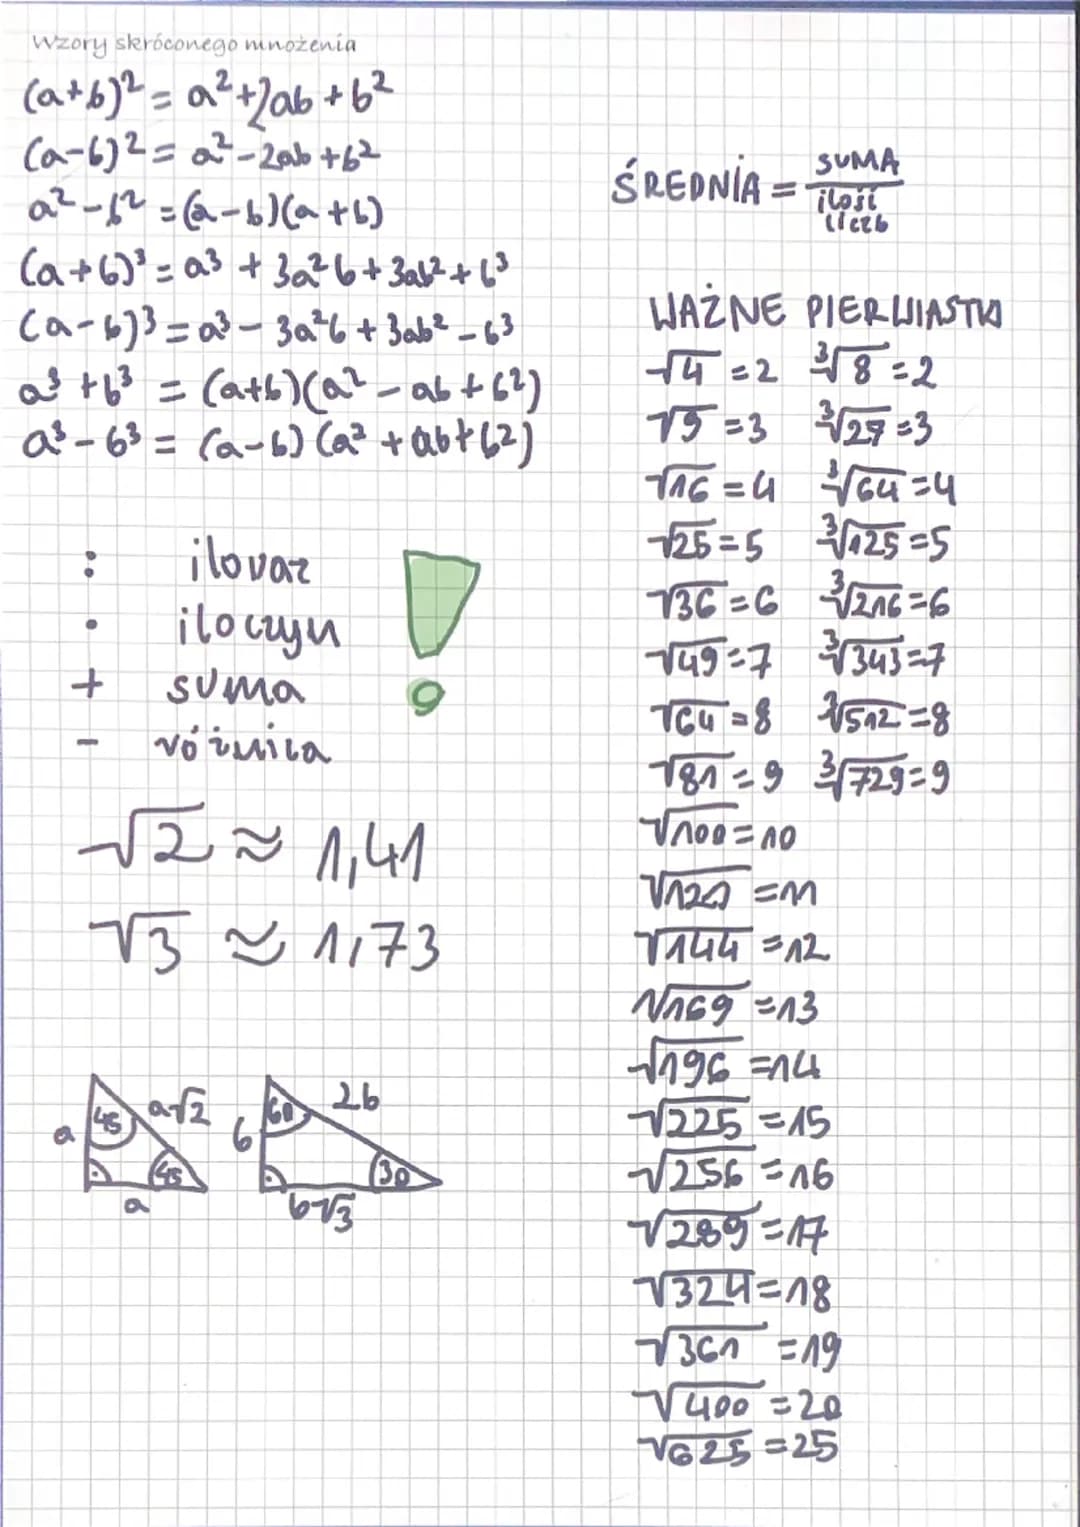 Wzory skróconego mnożenia
(a+b)² = a²+2ab+b²
(a-b)² = a²-2ab+b²
a²-b² = (a-b)(a+b)
(a+b)³ = a³ + 3a²b + 3ab² + b³
(a-b)³ = a³ - 3a²b + 3ab² - b³
a³ + b³ = (a+b)(a² - ab + b²)
a³ - b³ = (a-b)(a² + ab + b²)
: iloraz
· iloczyn
+ suma
- różnica
√2 ≈ 1,41
√3 ≈ 1,73
45 a√2
a
45
a
60 2b
b
30
b√3
ŚREDNIA = SUMA
ilość
liczb
WAŻNE PIERWIASTKI
√4 = 2 ³√8 = 2
√9 = 3 ³√27 = 3
√16 = 4 ³√64 = 4
√25 = 5 ³√125 = 5
√36 = 6 ³√216 = 6
√49 = 7 ³√343 = 7
√64 = 8 ³√512 = 8
√81 = 9 ³√729 = 9
√100 = 10
√121 = 11
√144 = 12
√169 = 13
√196 = 14
√225 = 15
√256 = 16
√289 = 17
√324 = 18
√361 = 19
√400 = 20
√625 = 25